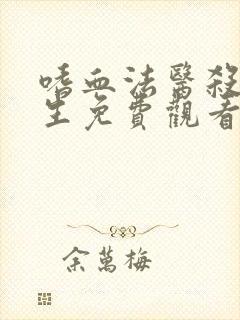 嗜血法醫殺
生免費觀看
余萬梅